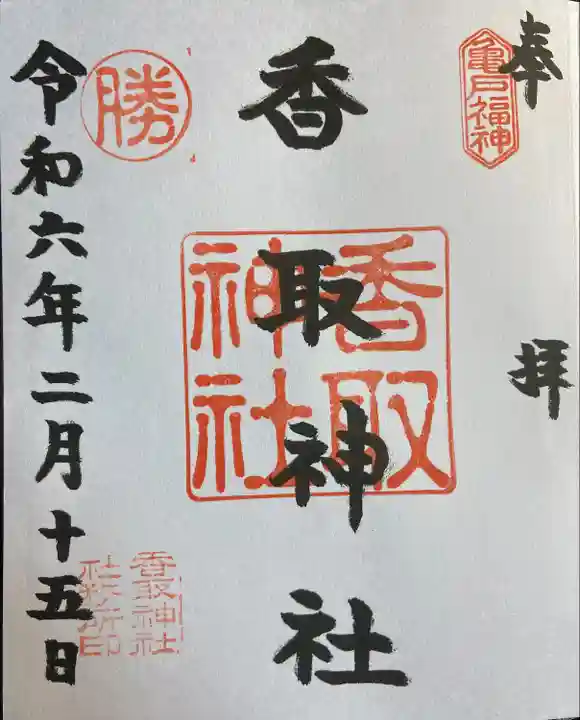 奉拝
亀戸福神
香取神社
香取
神社
勝
令和六年二月十五日
香取神社
社務所印